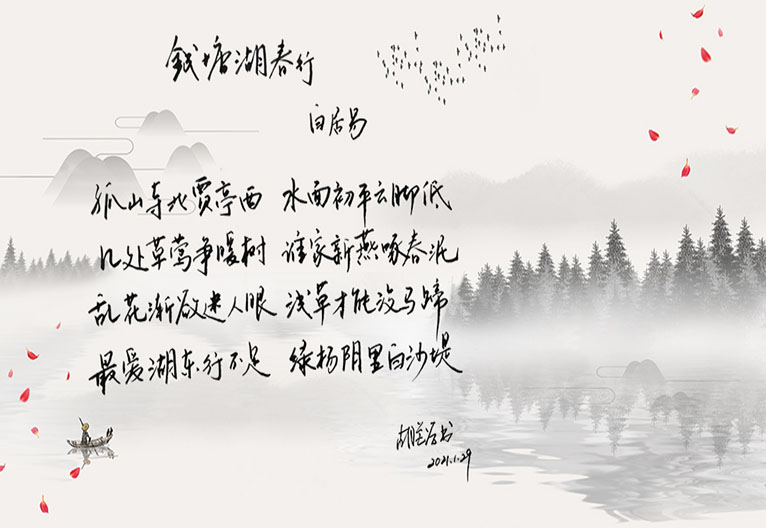 钱塘湖春行
白居易
孤山寺北贾亭西 水面初平云脚低
几处草莺争暖树 谁家新燕啄春泥
乱花渐欲迷人眼 浅草才能没马蹄
最爱湖东行不足 绿杨阴里白沙堤
胡书
2021.1.29